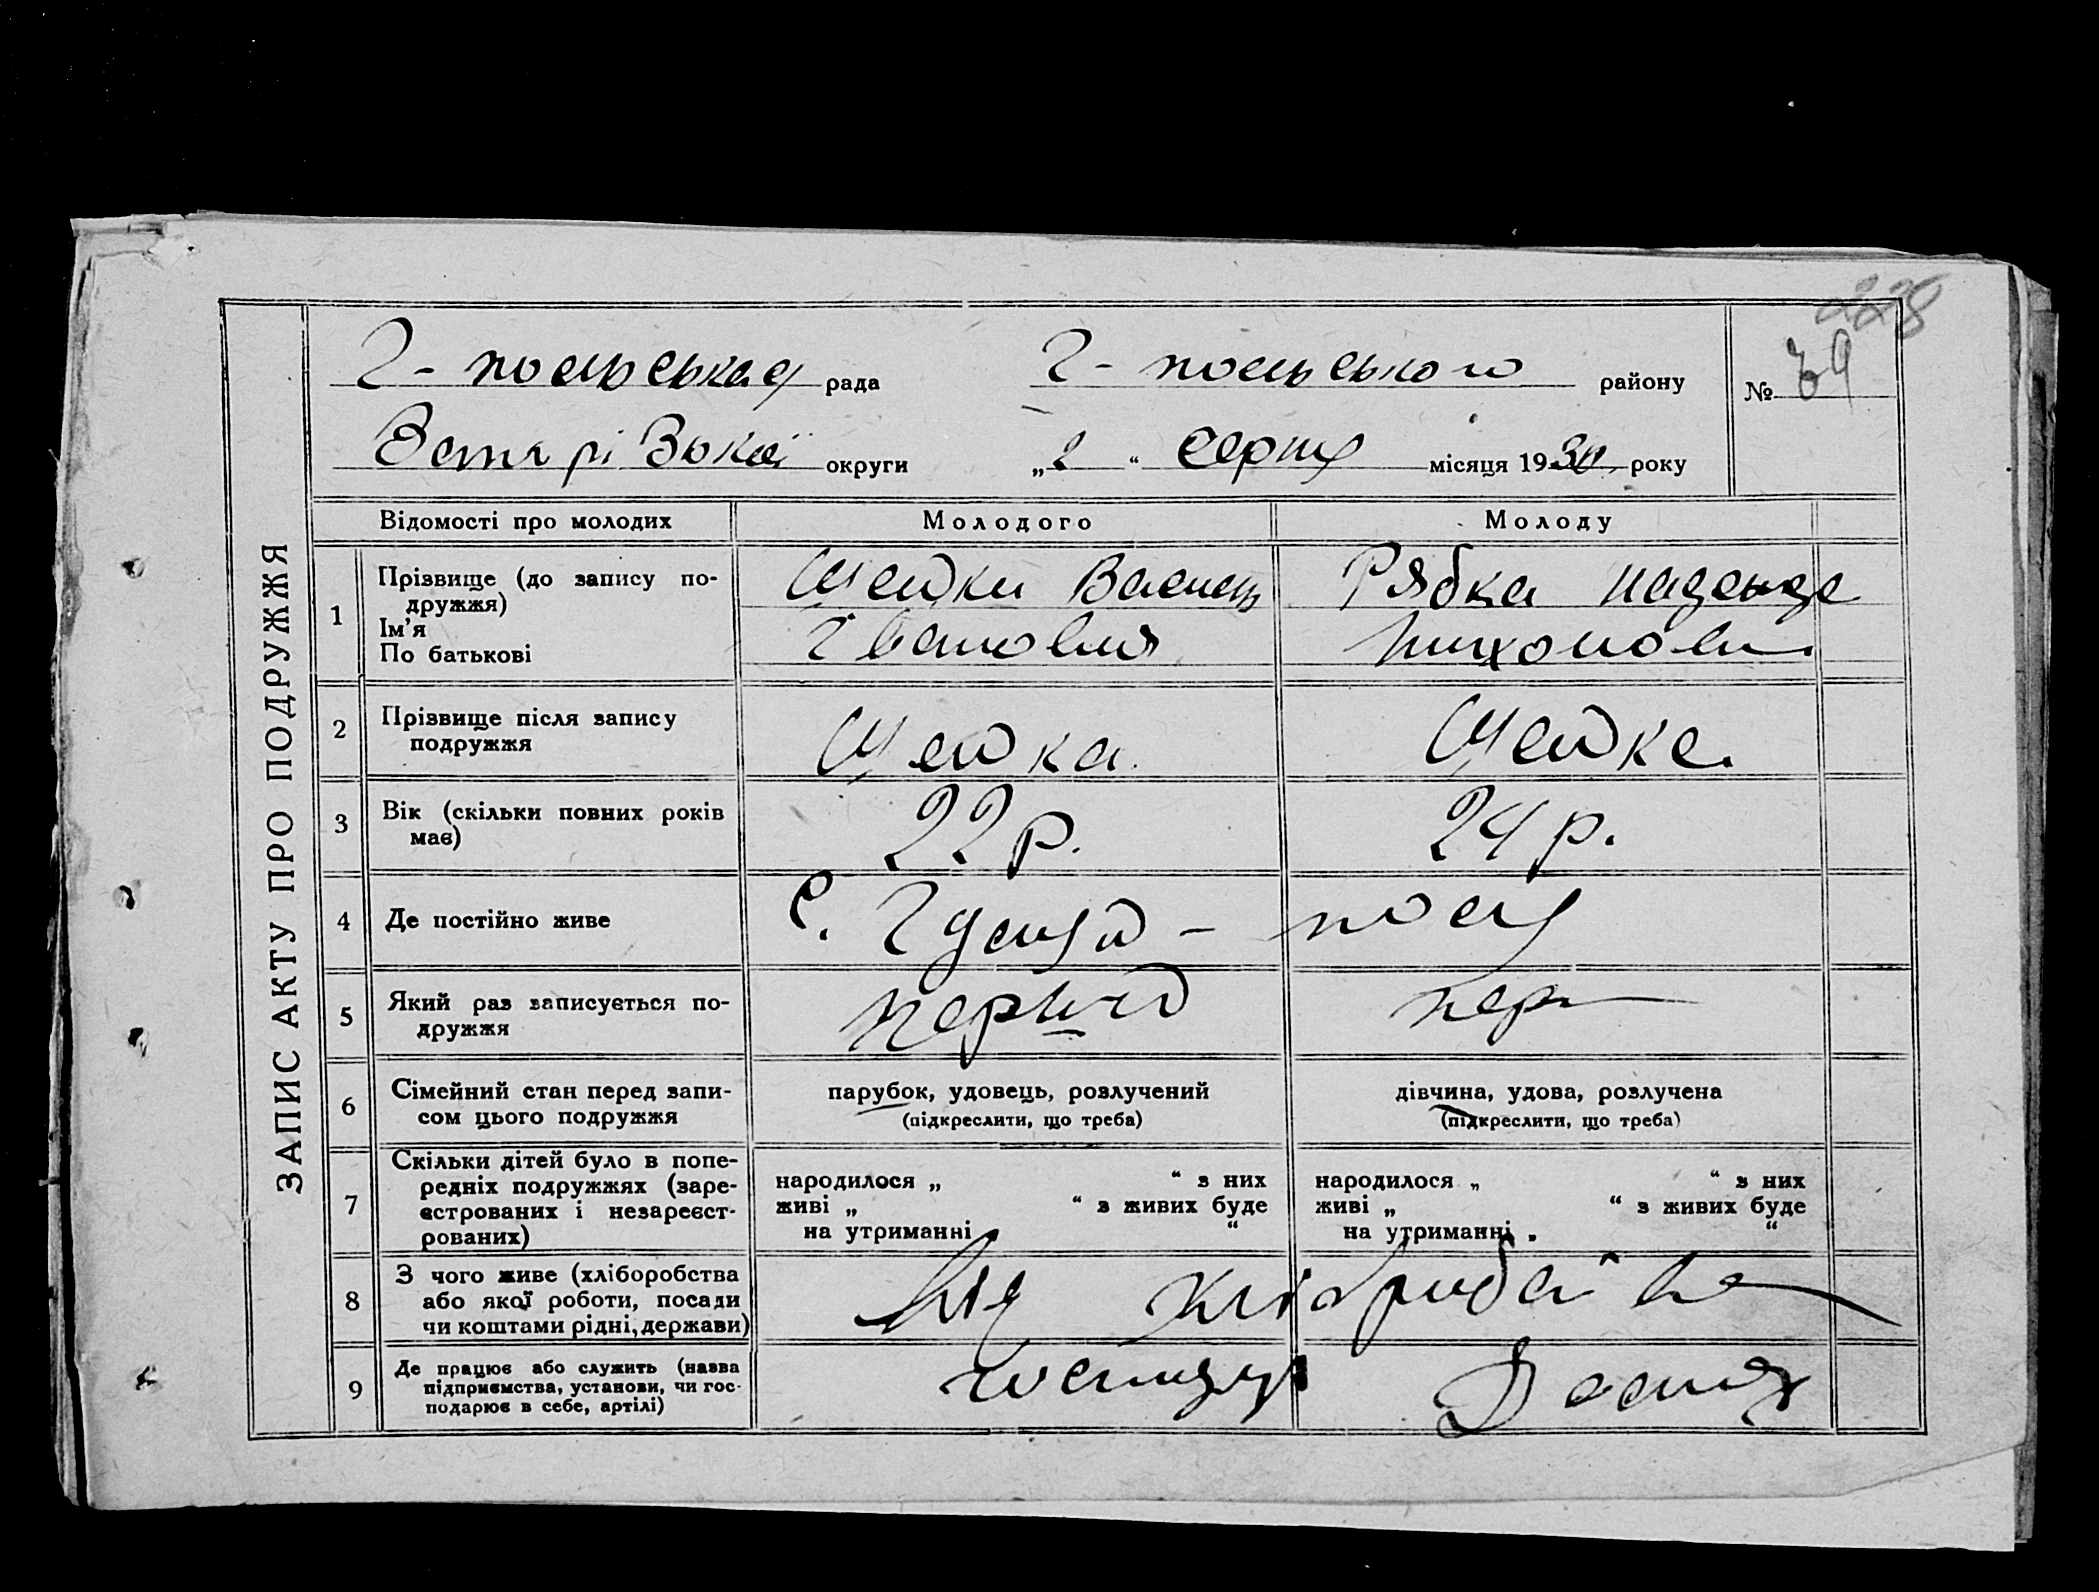 228
Г-польська рада Г-польського району № 79
округи „2“ серпня місяця 1930 року
ЗАПИС АКТУ ПРО ПОДРУЖЖЯ
Відомості про молодих Молодого Молоду
1 Прізвище (до запису по-
дружжя)
Ім'я
По батькові
Шейки Рябка
Іванович Тихонови
2 Прізвище після запису
подружжя
Шейка Шейка
3 Вік (скільки повних років
має)
22 р. 24 р.
4 Де постійно живе с. Гуляй-поля
5 Який раз записується по-
дружжя
перший пер
6 Сімейний стан перед запи-
сом цього подружжя
парубок, удовець, розлучений дівчина, удова, розлучена
(підкреслити, що треба) (підкреслити, що треба)
7 Скільки дітей було в попе-
редніх подружжях (заре-
єстрованих і незареєст-
рованих)
народилося „ “ з них народилося „ “ з них
живі „ “ з живих буде живі „ “ з живих буде
на утриманні “ на утриманні „ “
8 З чого живе (хліборобства
або якої роботи, посади
чи коштами рідні, держави)
від
9 Де працює або служить (назва
підприємства, установи, чи гос-
подарює в себе, артілі)